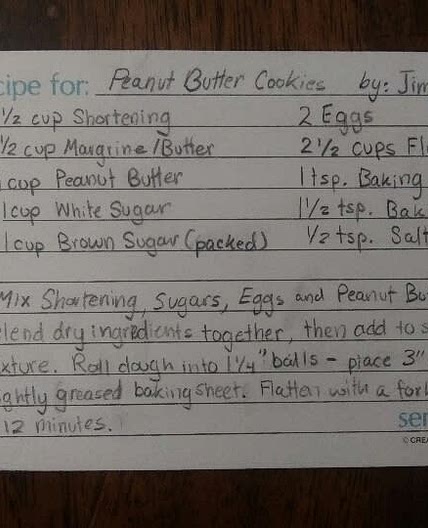 cipe for: Peanut Butter Cookies by: Jim
1/2 cup Shortening 2 Eggs
1/2 cup Margrine/Butter 2 1/2 cups Fl
cup Peanut Butter 1 tsp. Baking
1 cup White Sugar 1 1/2 tsp. Bak
1 cup Brown Sugar (packed) 1/2 tsp. Salt
Mix Shortening, Sugars, Eggs and Peanut Bu
lend dry ingredients together, then add to s
xture. Roll dough into 1 1/4" balls - place 3"
ghtly greased baking sheet. Flatten with a fork
12 minutes.
ser
© CREA